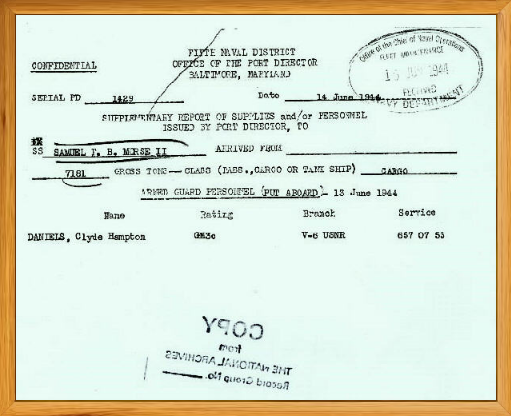 FIFTH NAVAL DISTRICT
CONFIDENTIAL
OFFICE OF THE PORT DIRECTOR
BALTIMORE, MARYLAND
Office of the Chief of Naval Operations
FLEET MAINTENANCE
1944
NAVY DEPARTMENT
SERIAL PD 1429 Date 14 June 1944
SUPPLEMENTARY REPORT OF SUPPLIES and/or PERSONNEL
ISSUED BY PORT DIRECTOR, TO
SS SAMUEL F. B. MORSE II ARRIVED FROM
7181 GROSS TONS—CLASS (PASS., CARGO OR TANK SHIP) CARGO
ARMED GUARD PERSONNEL (PUT ABOARD) - 13 June 1944
Name Rating Branch Service
DANIELS, Clyde Hampton GM3c V-6 USNR 657 07 53
COPY
from
THE NATIONAL ARCHIVES
Record Group No.